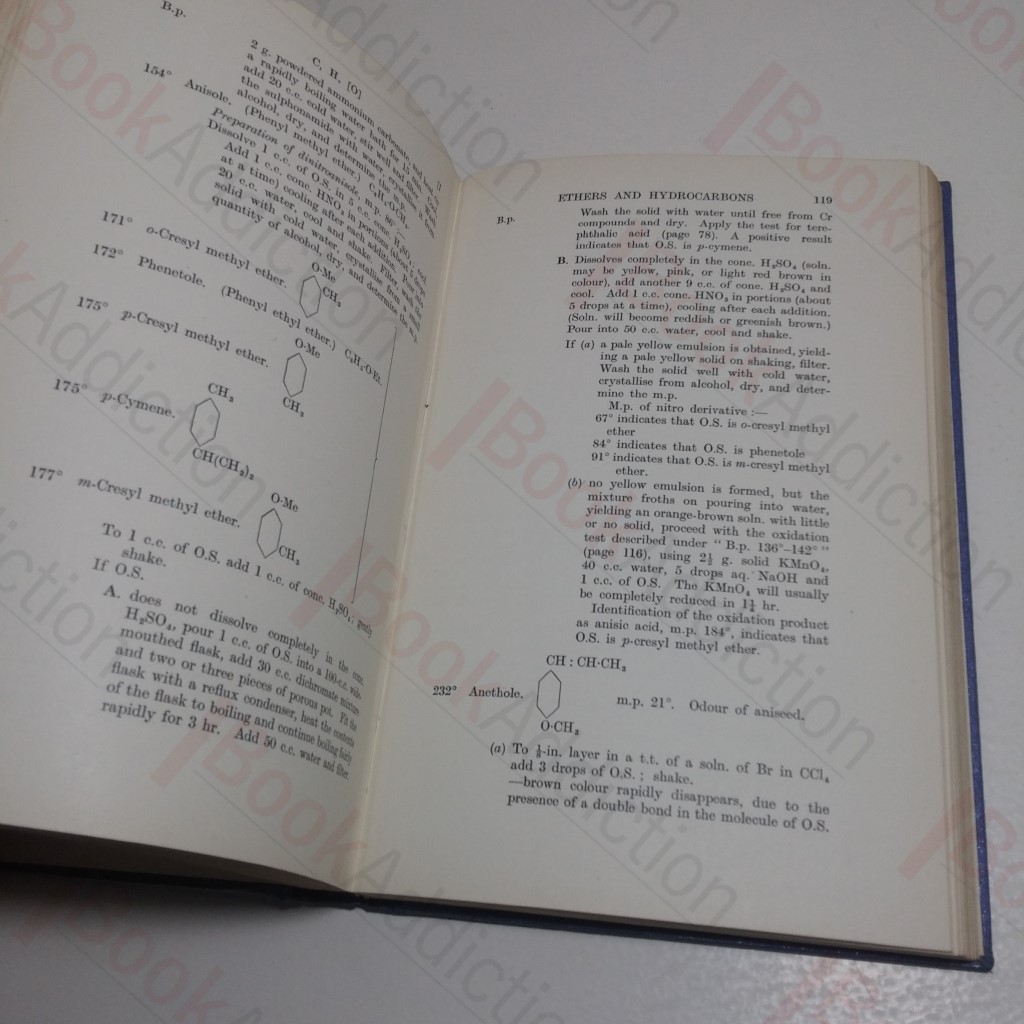 B.p.
C, H, [O]
2 g. powdered ammonium carbonate, and heat in
a rapidly boiling water bath for 15 min. If
add 20 c.c. cold water, stir well and filter. Wash
the sulphonamide with water, crystallise it from
alcohol, dry, and determine the m.p.
154° Anisole. (Phenyl methyl ether.) C₆H₅·O·CH₃.
Preparation of dinitroanisole, m.p. 86°.
Dissolve 1 c.c. of O.S. in 5 c.c. conc. H₂SO₄; cool.
Add 1 c.c. conc. HNO₃ in portions (about 5 drops
at a time) cooling after each addition. Pour into
20 c.c. water, cool and shake. Filter, wash the
solid with cold water, crystallise from a small
quantity of alcohol, dry, and determine the m.p.
171° o-Cresyl methyl ether.
O·Me
CH₃
172° Phenetole. (Phenyl ethyl ether.) C₆H₅·O·Et.
175° p-Cresyl methyl ether.
O·Me
CH₃
175° p-Cymene.
CH₃
CH(CH₃)₂
177° m-Cresyl methyl ether.
O·Me
CH₃
To 1 c.c. of O.S. add 1 c.c. of conc. H₂SO₄; gently
shake.
If O.S.
A. does not dissolve completely in the conc.
H₂SO₄, pour 1 c.c. of O.S. into a 100-c.c. wide-
mouthed flask, add 30 c.c. dichromate mixture
and two or three pieces of porous pot. Fit the
flask with a reflux condenser, heat the contents
of the flask to boiling and continue boiling fairly
rapidly for 3 hr. Add 50 c.c. water and filter.
ETHERS AND HYDROCARBONS 119
B.p.
Wash the solid with water until free from Cr
compounds and dry. Apply the test for tere-
phthalic acid (page 78). A positive result
indicates that O.S. is p-cymene.
B. Dissolves completely in the conc. H₂SO₄ (soln.
may be yellow, pink, or light red brown in
colour), add another 9 c.c. of conc. H₂SO₄ and
cool. Add 1 c.c. conc. HNO₃ in portions (about
5 drops at a time), cooling after each addition.
(Soln. will become reddish or greenish brown.)
Pour into 50 c.c. water, cool and shake.
If (a) a pale yellow emulsion is obtained, yield-
ing a pale yellow solid on shaking, filter.
Wash the solid well with cold water,
crystallise from alcohol, dry, and deter-
mine the m.p.
M.p. of nitro derivative :—
67° indicates that O.S. is o-cresyl methyl
ether
84° indicates that O.S. is phenetole
91° indicates that O.S. is m-cresyl methyl
ether.
(b) no yellow emulsion is formed, but the
mixture froths on pouring into water,
yielding an orange-brown soln. with little
or no solid, proceed with the oxidation
test described under " B.p. 136°–142° "
(page 116), using 2½ g. solid KMnO₄,
40 c.c. water, 5 drops aq. NaOH and
1 c.c. of O.S. The KMnO₄ will usually
be completely reduced in 1½ hr.
Identification of the oxidation product
as anisic acid, m.p. 184°, indicates that
O.S. is p-cresyl methyl ether.
CH : CH·CH₃
232° Anethole.
m.p. 21°. Odour of aniseed.
O·CH₃
(a) To ½-in. layer in a t.t. of a soln. of Br in CCl₄
add 3 drops of O.S. ; shake.
—brown colour rapidly disappears, due to the
presence of a double bond in the molecule of O.S.
BookAddiction